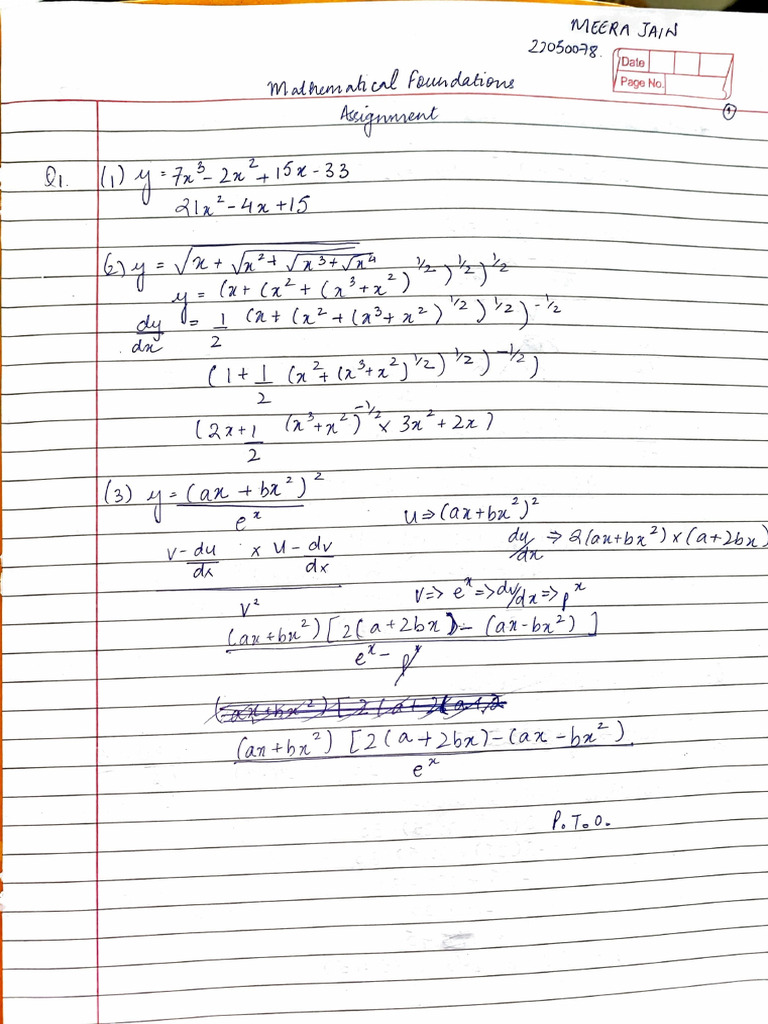 MEERA JAIN
22050078.
Date
Page No.
Mathematical Foundations
①
Assignment
Q1. (1) y = 7x³ - 2x² + 15x - 33
21x² - 4x + 15
(2) y = √x + √x² + √x³ + √x⁴
y = (x + (x² + (x³ + x²)^1/2)^1/2)^1/2
dy/dx = 1/2 (x + (x² + (x³ + x²)^1/2)^1/2)^-1/2
(1 + 1/2 (x² + (x³ + x²)^1/2)^1/2)^-1/2)
(2x + 1/2 (x³ + x²)^-1/2 × 3x² + 2x)
(3) y = (ax + bx²)² / e^x
u ⇒ (ax + bx²)²
dy/dx ⇒ 2(ax + bx²) × (a + 2bx)
v - du/dx × u - dv/dx / v²
v ⇒ e^x ⇒ dv/dx ⇒ e^x
(ax + bx²) [2(a + 2bx) - (ax - bx²)] / e^x - e^x
(ax + bx²) [2(a + 2bx) - (ax - bx²) / e^x
P.T.O.